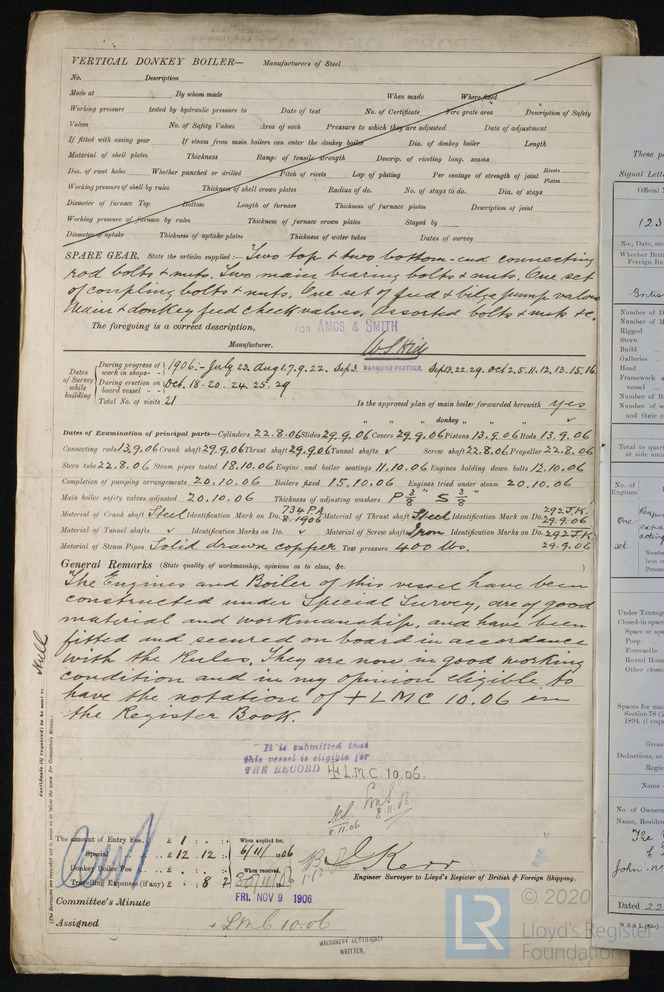 VERTICAL DONKEY BOILER— Manufacturers of Steel
No. Description
Made at By whom made When made Where fixed
Working pressure tested by hydraulic pressure to Date of test No. of Certificate Fire grate area Description of Safety
Valves No. of Safety Valves Area of each Pressure to which they are adjusted Date of adjustment
If fitted with easing gear If steam from main boilers can enter the donkey boiler Dia. of donkey boiler Length
Material of shell plates Thickness Range of tensile strength Descrip. of riveting long. seams
Dia. of rivet holes Whether punched or drilled Pitch of rivets Lap of plating Per centage of strength of joint Rivets Plates
Working pressure of shell by rules Thickness of shell crown plates Radius of do. No. of stays to do. Dia. of stays
Diameter of furnace Top Bottom Length of furnace Thickness of furnace plates Description of joint
Working pressure of furnace by rules Thickness of furnace crown plates Stayed by
Diameter of uptake Thickness of uptake plates Thickness of water tubes Dates of survey
SPARE GEAR. State the articles supplied:— Two top & two bottom-end connecting
rod bolts & nuts. Two main bearing bolts & nuts. One set
of coupling bolts & nuts. One set of feed & bilge pump valves
Main & donkey feed check valves. Assorted bolts & nuts &c.
The foregoing is a correct description,
FOR AMOS & SMITH
Manufacturer.
MANAGING PARTNER.
Dates of Survey while building
During progress of work in shops - - 1906:- July 23. Aug 17. 9. 22. Sep 3. Sep 13. 22. 29. Oct 2. 5. 11. 12. 13. 15. 16
During erection on board vessel - - - Oct. 18. 20. 24. 25. 29
Total No. of visits 21
Is the approved plan of main boiler forwarded herewith yes
" " " donkey " " "
Dates of Examination of principal parts—Cylinders 22.8.06 Slides 29.9.06 Covers 29.9.06 Pistons 13.9.06 Rods 13.9.06
Connecting rods 13.9.06 Crank shaft 29.9.06 Thrust shaft 29.9.06 Tunnel shafts ✓ Screw shaft 22.8.06 Propeller 22.8.06
Stern tube 22.8.06 Steam pipes tested 18.10.06 Engine and boiler seatings 11.10.06 Engines holding down bolts 12.10.06
Completion of pumping arrangements 20.10.06 Boilers fixed 15.10.06 Engines tried under steam 20.10.06
Main boiler safety valves adjusted 20.10.06 Thickness of adjusting washers P 3/8" S 3/8"
Material of Crank shaft Steel Identification Mark on Do. 734 P.A. 8.1906 Material of Thrust shaft Steel Identification Mark on Do. 292 J.K. 29.9.06
Material of Tunnel shafts ✓ Identification Marks on Do. ✓ Material of Screw shafts Iron Identification Marks on Do. 292 J.K. 29.9.06
Material of Steam Pipes Solid drawn copper Test pressure 400 lbs.
General Remarks (State quality of workmanship, opinions as to class, &c.
The Engines and Boiler of this vessel have been
constructed under Special Survey, are of good
material and workmanship, and have been
fitted and secured on board in accordance
with the Rules. They are now in good working
condition and in my opinion eligible to
have the notation of + LMC 10.06 in
the Register Book.
It is submitted that
this vessel is eligible for
THE RECORD + L.M.C. 10.06.
8.11.06
8.11.06
Hull
Certificate (if required) to be sent to
(The Surveyors are requested not to write on or below the space for Committee's Minute.)
The amount of Entry Fee. . £ 1 : : When applied for,
Special . . £ 12 . 12 : 6/11/1906
Donkey Boiler Fee . . £ : : When received,
Travelling Expenses (if any) £ : 8 2
J. Kerr
Engineer Surveyor to Lloyd's Register of British & Foreign Shipping.
Committee's Minute FRI. NOV 9 1906
Assigned + LMC 10.06
MACHINERY CERTIFICATE
WRITTEN.
These p
Signal Lette
Official
123
No., Date, an
Whether Briti
Foreign Bu
British
Number of D
Number of M
Rigged
Stern
Build
Galleries
Head
Framework a
vessel
Number of B
Number of w
and their
Total to quart
at side am
No. of
Engines.
One
set
Under Tonnag
Closed-in space
Space or spa
Poop
Forecastle
Round Hous
Other closed
Spaces for mac
Section 78 (2
1894, if requ
Gross
Deductions, as
Regis
Name
No. of Owners
Name, Residen
The
John
Dated 22
© 2020
LR
Lloyd's Register
Foundation